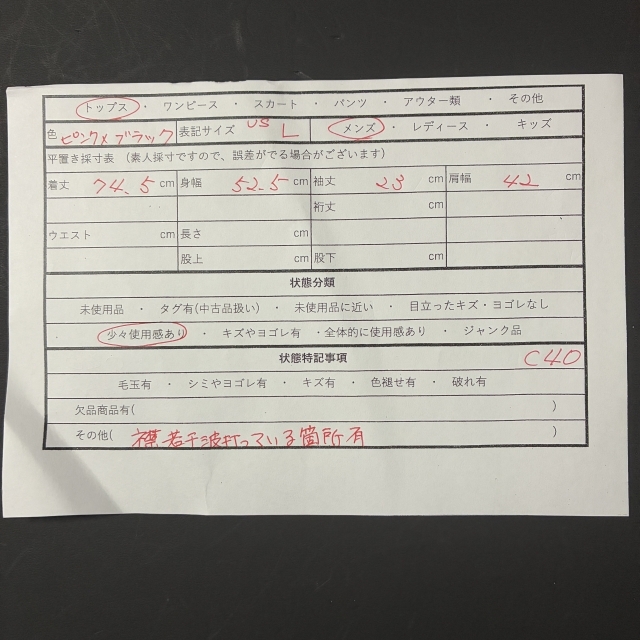 トップス ・ ワンピース ・ スカート ・ パンツ ・ アウター類 ・ その他
色 ピンク×ブラック 表記サイズ US L メンズ ・ レディース ・ キッズ
平置き採寸表 (素人採寸ですので、誤差がでる場合がございます)
着丈 74.5 cm 身幅 52.5 cm 袖丈 23 cm 肩幅 42 cm
裄丈 cm
ウエスト cm 長さ cm
股上 cm 股下 cm
状態分類
未使用品 ・ タグ有(中古品扱い) ・ 未使用品に近い ・ 目立ったキズ・ヨゴレなし
・ 少々使用感あり ・ キズやヨゴレ有 ・全体的に使用感あり ・ ジャンク品
状態特記事項 C40
毛玉有 ・ シミやヨゴレ有 ・ キズ有 ・ 色褪せ有 ・ 破れ有
欠品商品有( )
その他( 襟若干波打っている箇所有 )